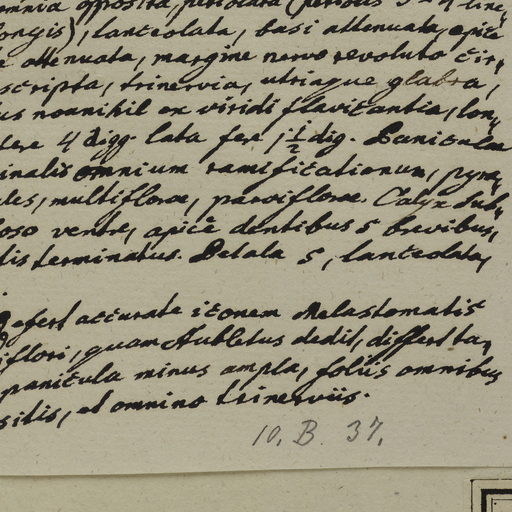 omnia opposita, petiolata (petiolis 3-4 line,
longis), lanceolata, basi attenuata, apice
attenuata, margine nervo revoluto cir,
scripta, trinervia, utriaque glabra,
nonnihil ex viridi flavicantia, lon,
4 digg. lata fere 1 1/2 dig. Panicula
inalis omnium ramificationum, pyra,
les, multiflorae, parviflorae. Calyx sub,
loso ventre, apice dentibus 5 brevibus,
tis terminatus. Petala 5, lanceolata,
Refert accurate iconem Melastomatis
iflori, quam Aubletus dedit, differt ta,
panicula minus ampla, foliis omnibus
sitis, et omnino trinerviis.
10. B. 37.